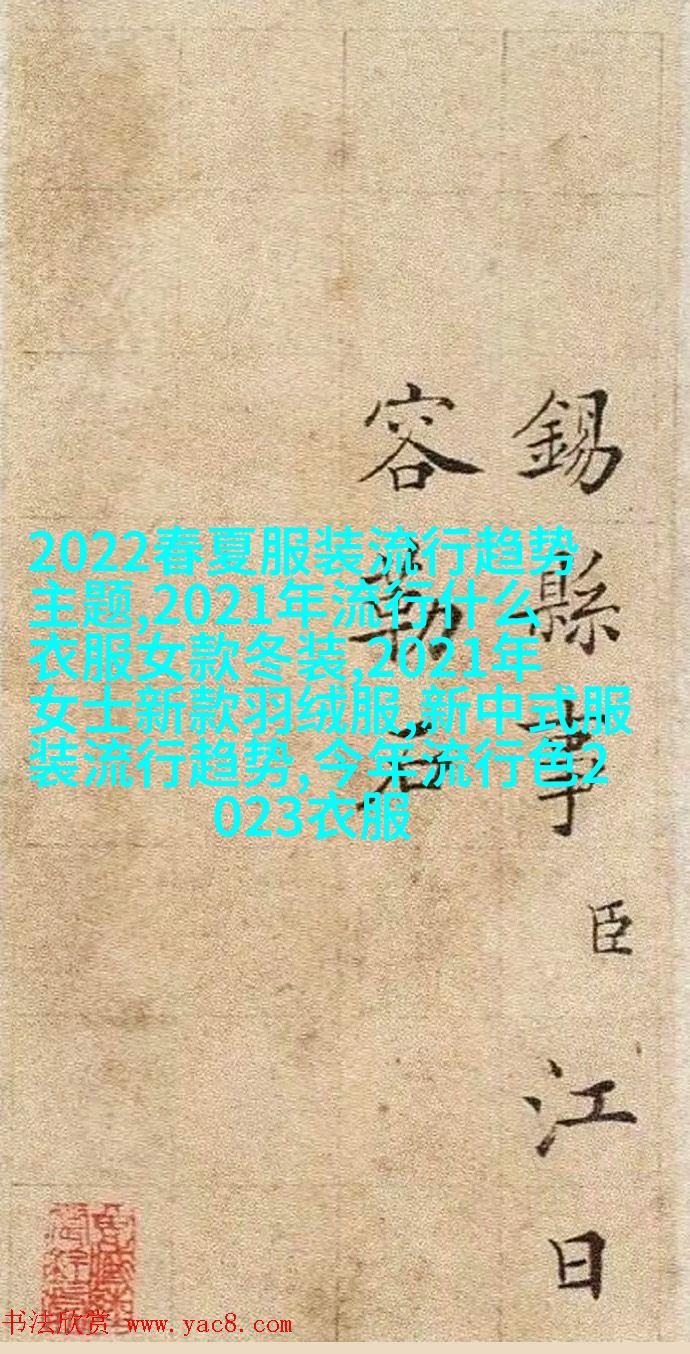 錫縣事臣江日
容勒石
2022春夏服装流行趋势
主题,2021年流行什么
衣服女款冬装,2021年
女士新款羽绒服,新中式服
装流行趋势,今年流行色2
023衣服
书法欣赏 www.yac8.com